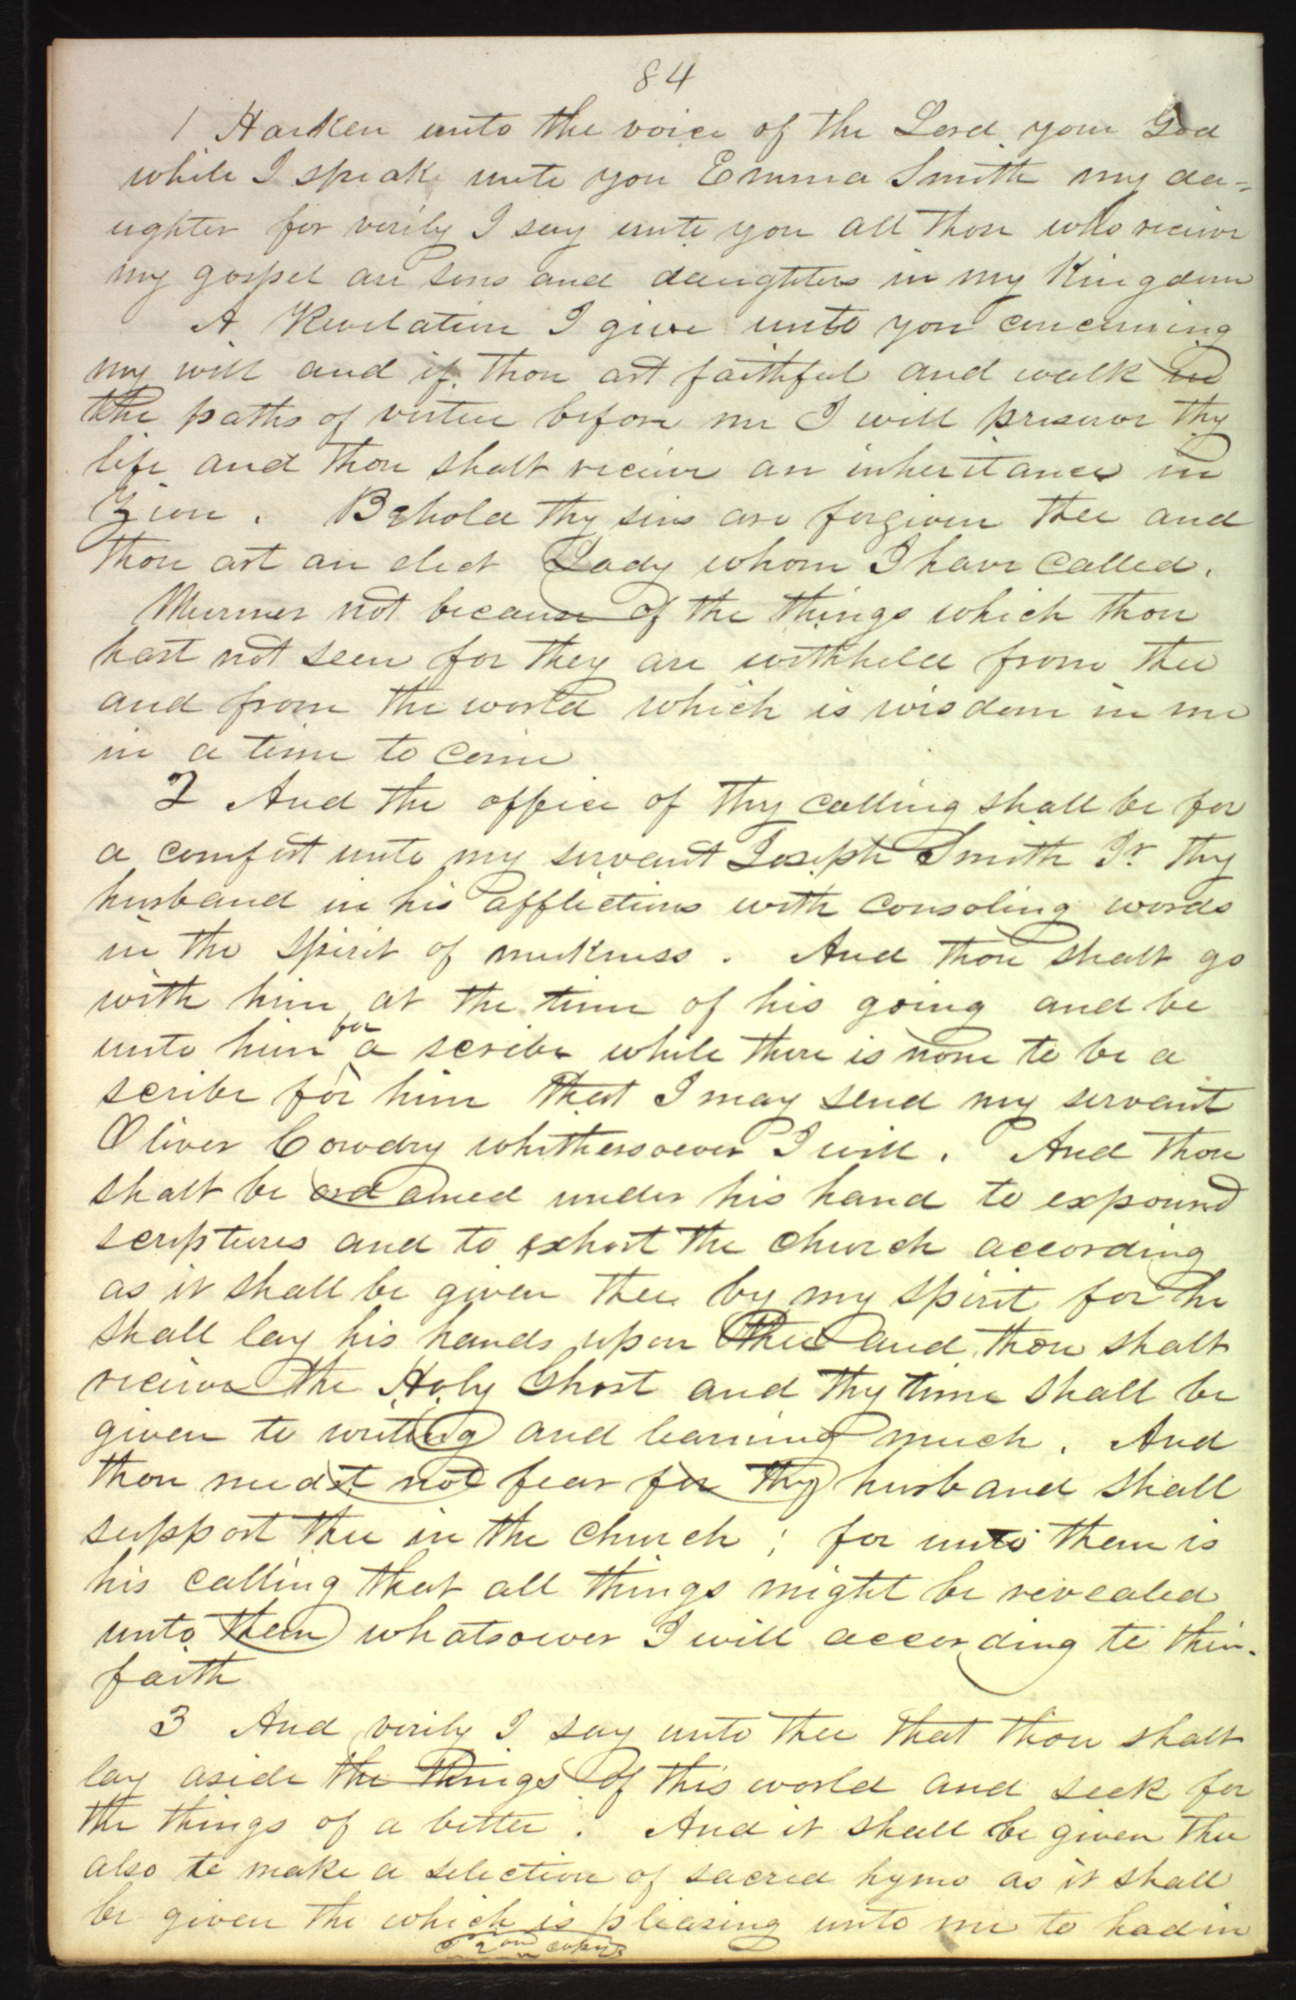 84
1 Harken unto the voice of the Lord your God
while I speak unto you Emma Smith my da-
ughter for verily I say unto you all those who receive
my gospel are sons and daughters in my Kingdom
A Revelation I give unto you concerning
my will and if thou art faithful and walk in
the paths of virtue before me I will preserve thy
life and thou shalt receive an inheritance in
Zion. Behold thy sins are forgiven thee and
thou art an elect Lady whom I have called.
Murmer not because of the things which thou
hast not seen for they are withheld from thee
and from the world which is wisdom in me
in a time to come
2 And the office of thy calling shall be for
a comfort unto my servant Joseph Smith Jr. thy
husband in his afflictions with consoling words
in the spirit of meekness. And thou shalt go
with him at the time of his going and be
unto him for a scribe while there is none to be a
scribe for him that I may send my servant
Oliver Cowdry whithersoever I will. And thou
shalt be ordained under his hand to expound
scriptures and to exhort the church according
as it shall be given thee by my spirit for he
shall lay his hands upon thee and thou shalt
receive the Holy Ghost and thy time shall be
given to writing and learning much. And
thou needst not fear for thy husband shall
support thee in the church; for unto them is
his calling that all things might be revealed
unto them whatsoever I will according to their
faith
3 And verily I say unto thee that thou shalt
lay aside the things of this world and seek for
the things of a better. And it shall be given thee
also to make a selection of sacred hyms as it shall
be given the which is pleasing unto me to had in
2nd copy